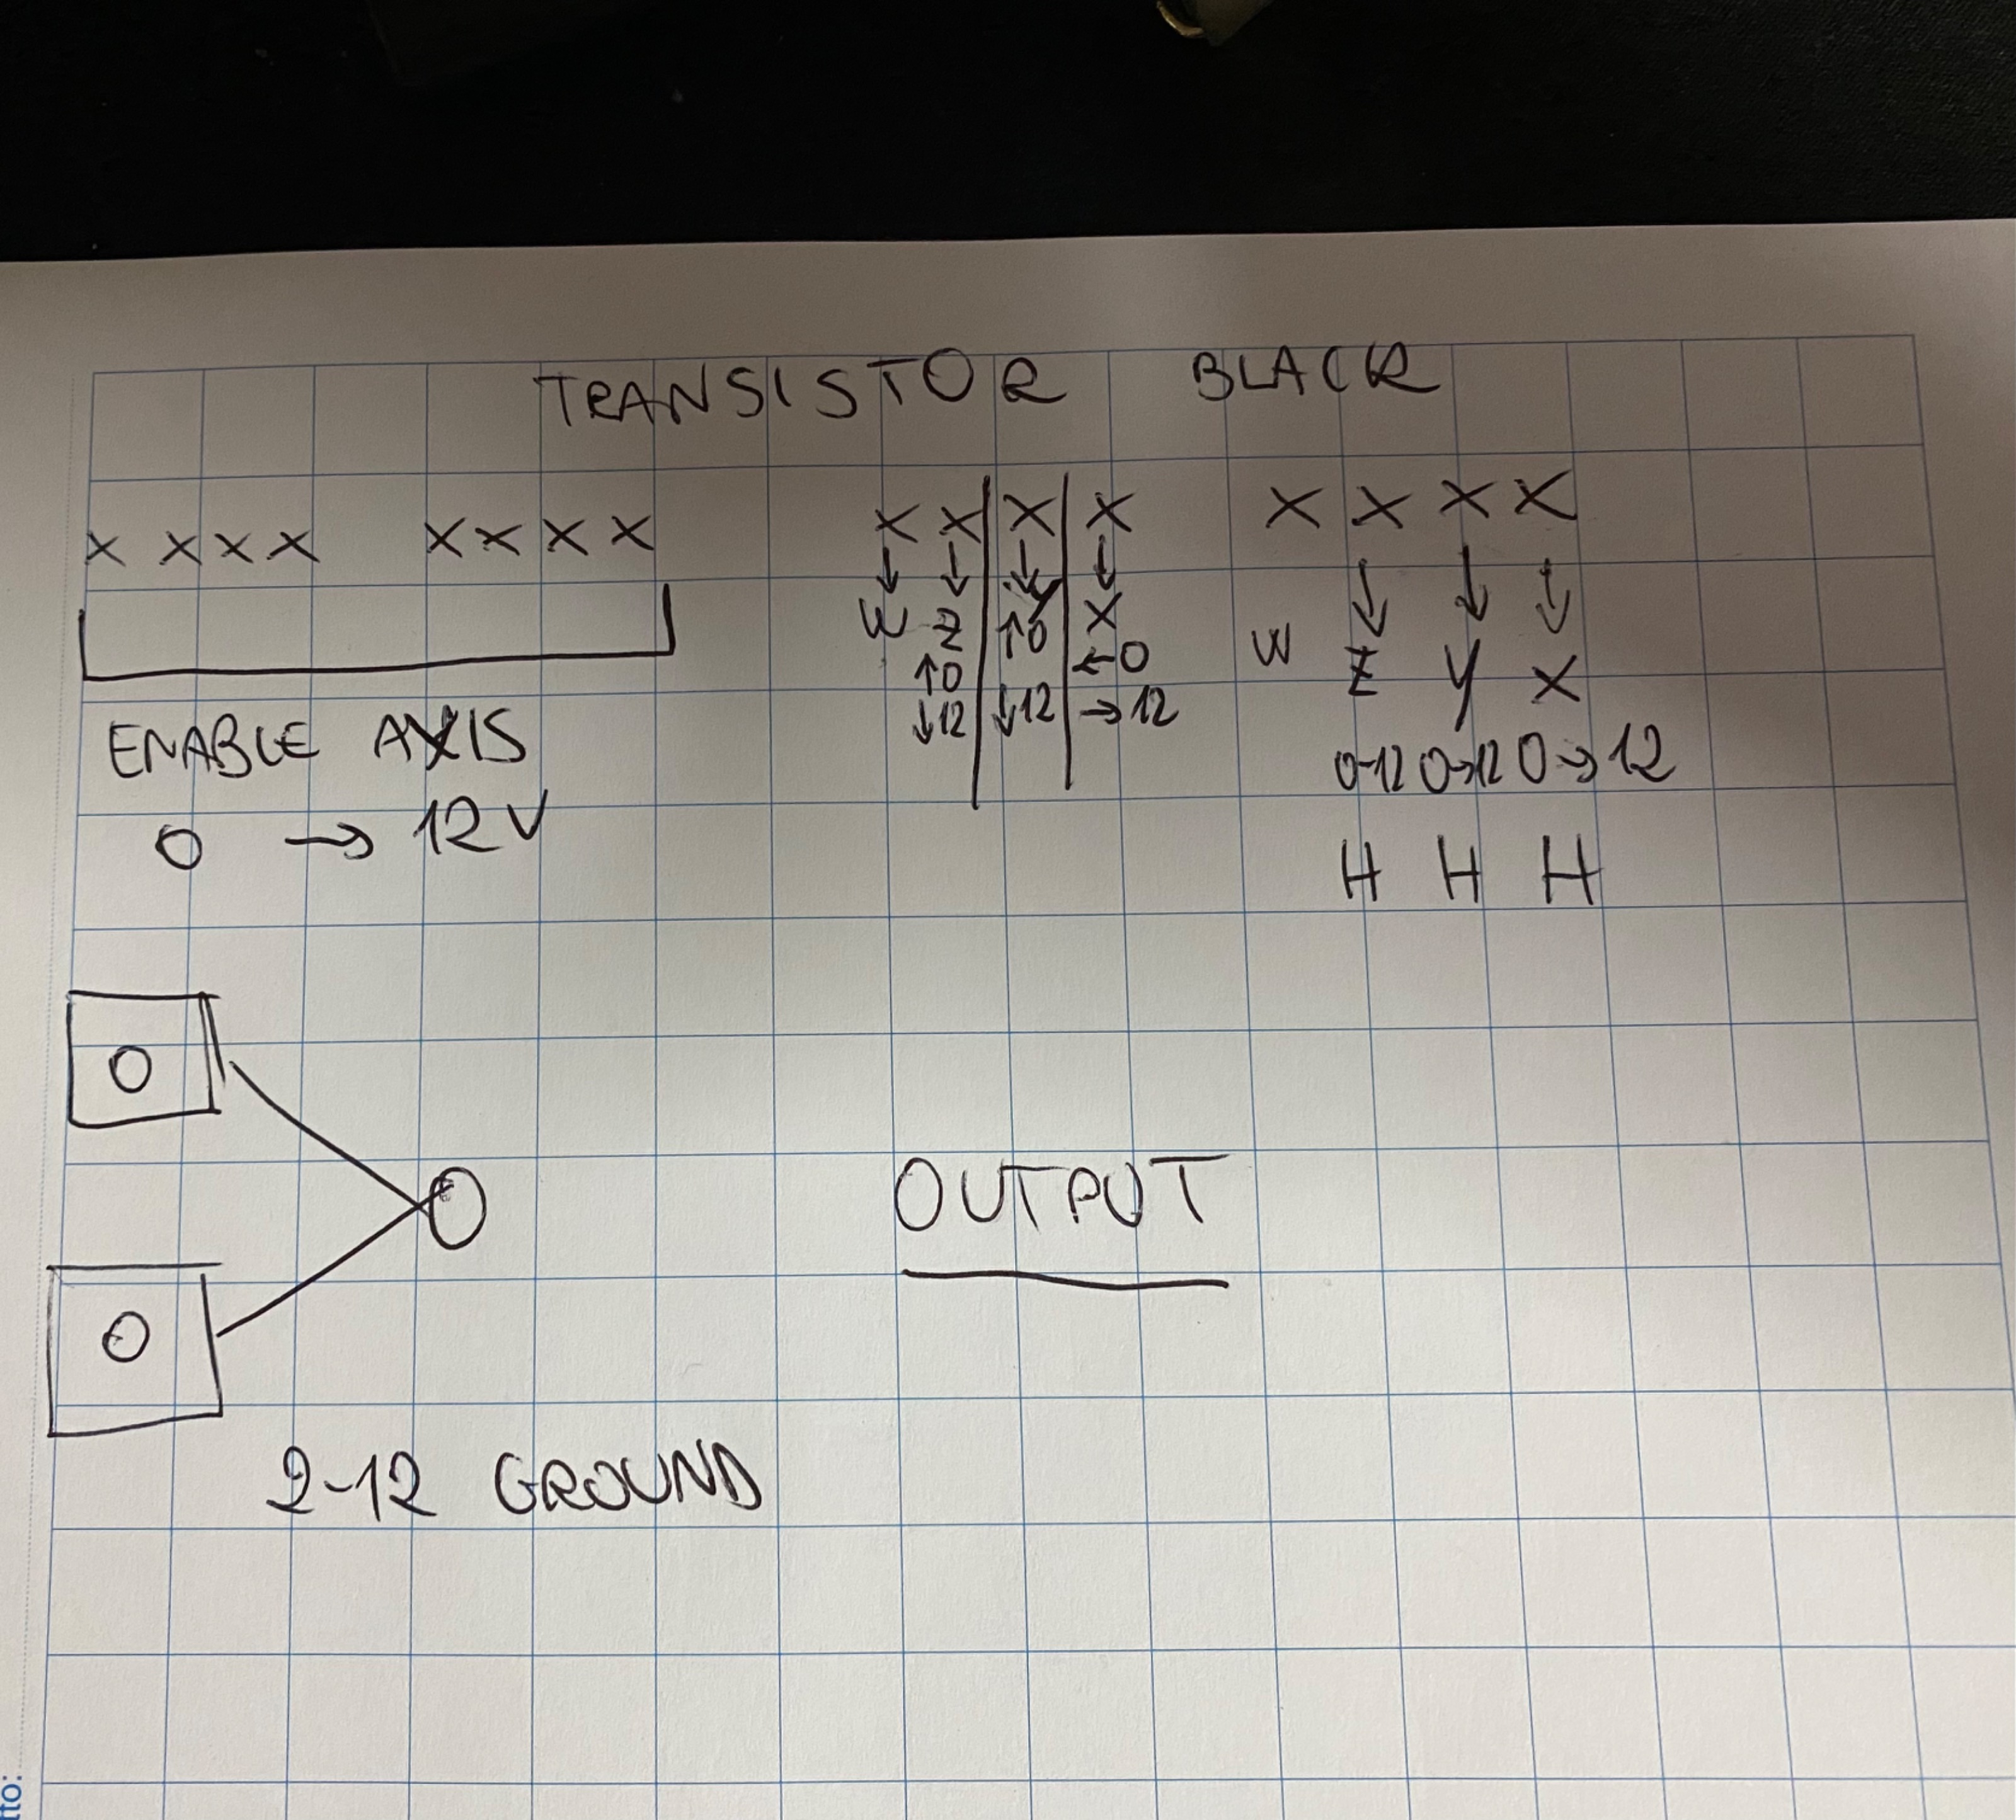 TRANSISTOR BLACK
X X X X X X X X X X X X X X X X
↓ ↓ ↓ ↓ ↓ ↓ ↓
W Z Y X W Z Y X
↑0 ↑0 ←0
↓12 ↓12 →12
0-12 0→12 0→12
H H H
ENABLE AXIS
0 → 12V
0
0
0
OUTPUT
2-12 GROUND
tto: